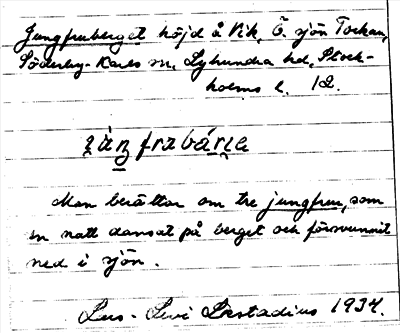 Jungfruberget höjd å Vik, Ö. sjön Torkan,
Söderby-Karls sn, Lyhundra hd, Stock-
holms l. 12.
Man berättar om tre jungfrur, som
en natt dansat på berget och försvunnit
ned i sjön.
Lars-Levi Læstadius 1934.